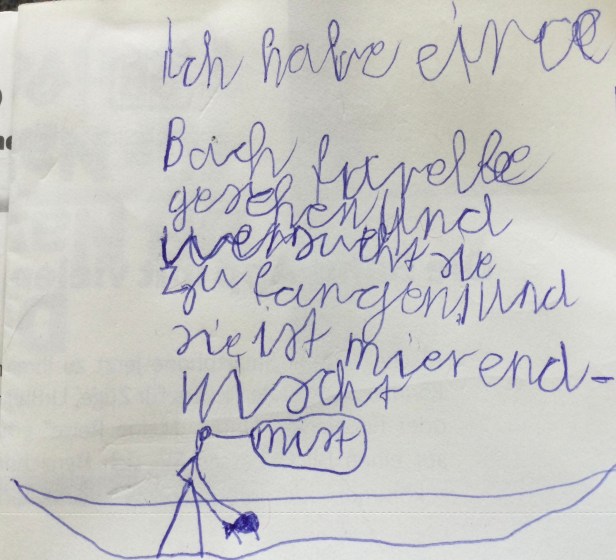 Ich habe eine
Bach forelle
gesehen und
versucht sie
zu fangen, und
sie ist mir end-
wischt
mist